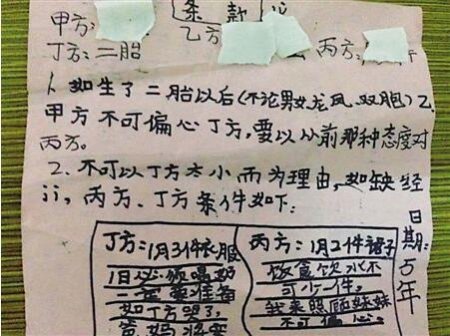 条款
甲方:
乙方
丙方:
丁方:二胎
1、如生了二胎以后(不论男女龙凤、双胞)乙
甲方不可偏心丁方,要以从前那种态度对
丙方。
2、不可以丁方太小而为理由,如缺经
济,丙方、丁方条件如下:
丁方:1月3件衣服
1日必须喝奶
一定要准备
如丁方哭了,
丙方:1月2件裙子
饭食饮水不
可少一件。
我来照顾妹妹
不可偏心。
日期:5年